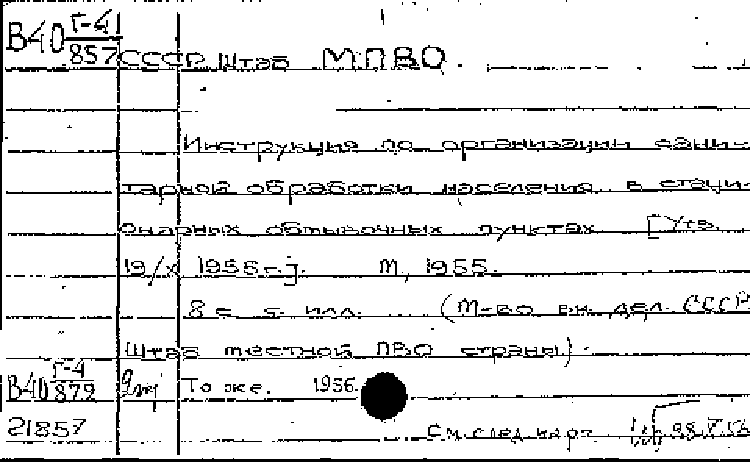 В40 Г-41/857
СССР Штаб МПВО.
Инструкция по организации сани-
тарной обработки населения в стаци-
онарных обмывочных пунктах [Утв.
19/X 1955 г.]. М, 1955.
8 с. с илл. (М-во вн. дел СССР
Штаб местной ПВО страны).
В40 Г-4/879 То же. 1956.
21857 См. след. карт.